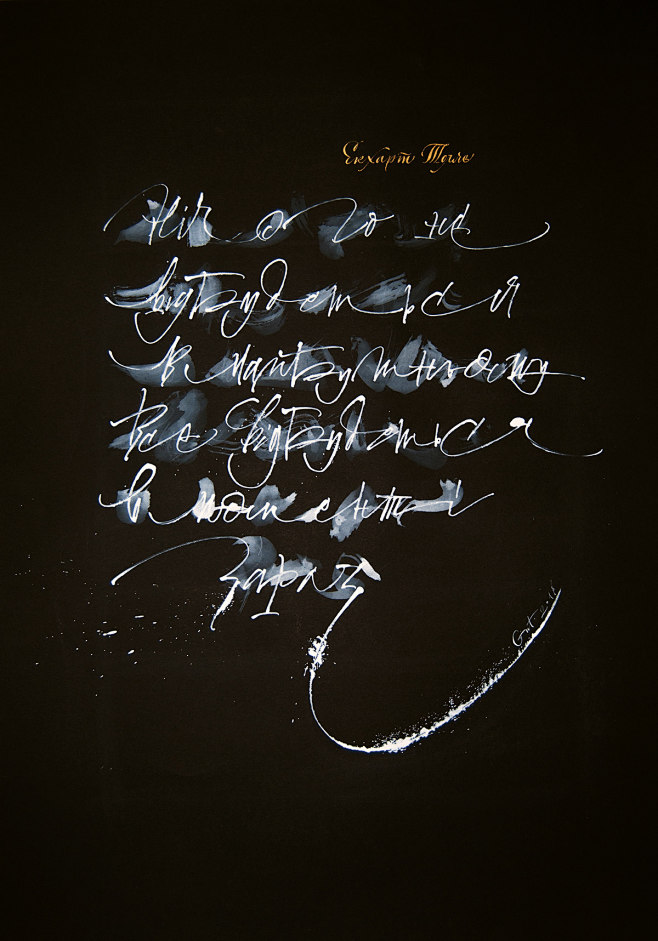 Екхарт
Нічого не
відбудеться
в майбутньому
Все відбудеться
в моменті
Зараз